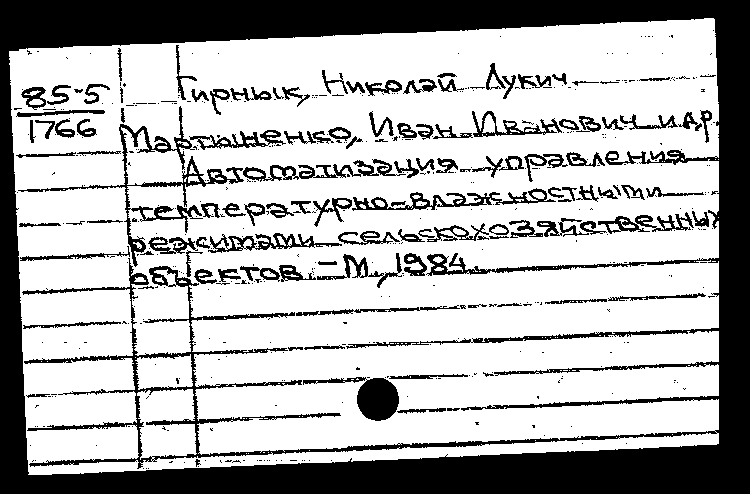 85-5
1766
Гирнык, Николай Лукич.
Мартыненко, Иван Иванович и др.
Автоматизация управления
температурно-влажностными
режимами сельскохозяйственных
объектов. - М., 1984.